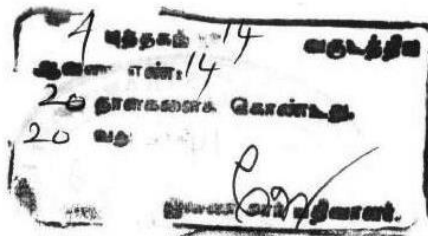 4 புத்தகம் 14 வருடத்திய
ஆவண எண்: 14
20 தாள்களைக் கொண்டது.
20 வது
பதிவாளர்.